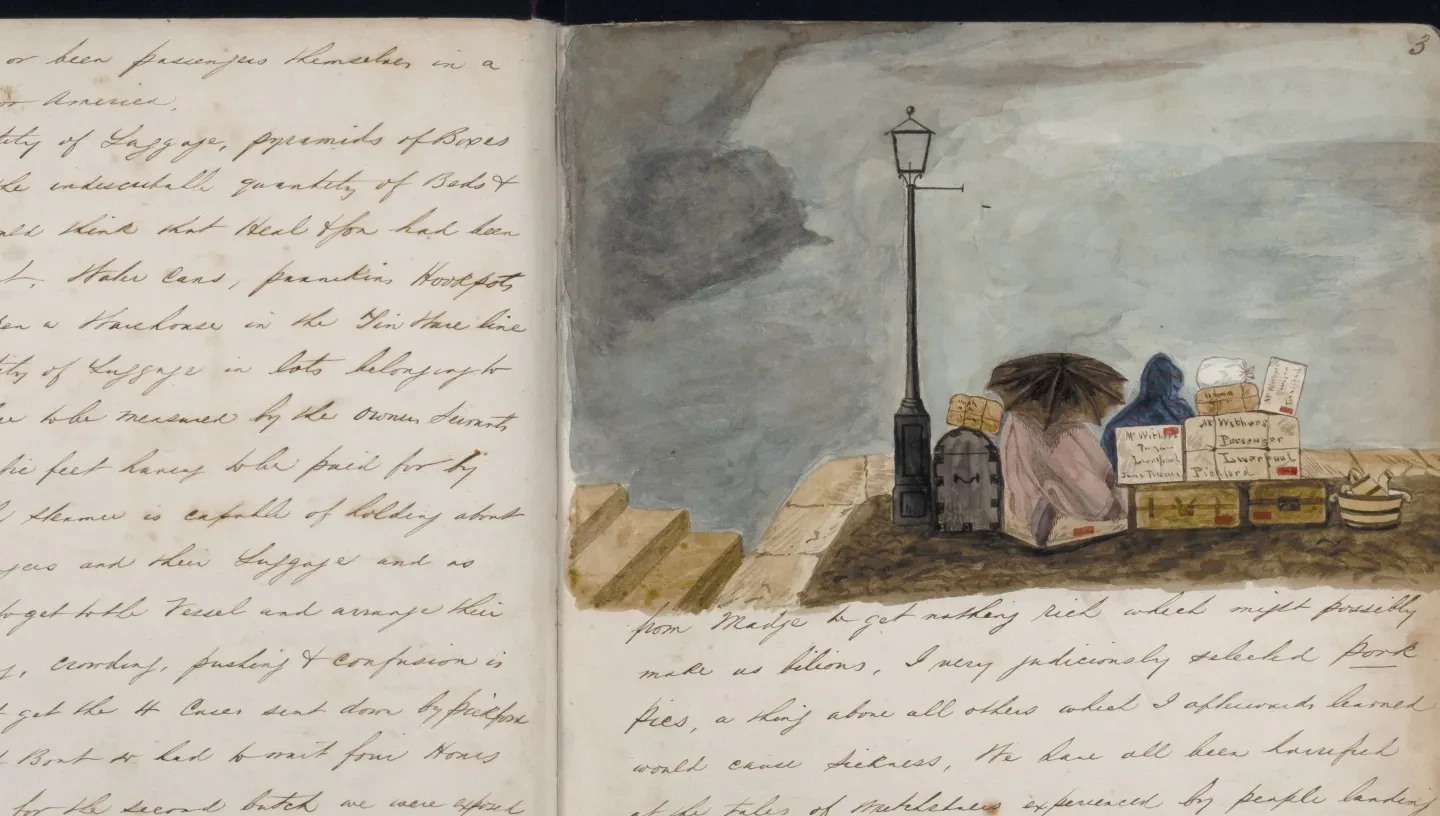 or been passengers themselves in a
or America.
tity of Luggage, pyramids of Boxes
the indescribable quantity of Beds &
uld think that Heal & Son had been
t. Water Cans, pannikins Hookpots
en a Warehouse in the Tin Ware line
tity of Luggage in lots belonging to
to be measured by the owners Servants
bic feet having to be paid for by
steamer is capable of holding about
gers and their Luggage and as
to get to the Vessel and arrange their
g, crowding, pushing & confusion is
t get the 4 Cases sent down by Pickford
Boat & had to wait four Hours
for the second batch we were exposed
3
Mr Withers
Passenger
Liverpool
Pickford
Mr Withers
Liverpool
from Madge to get nothing rich which might possibly
make us bilious, I very judiciously selected Pork
Pies, a thing above all others which I afterwards learned
would cause sickness, We have all been horrified
at the tales of wretchedness experienced by people landing